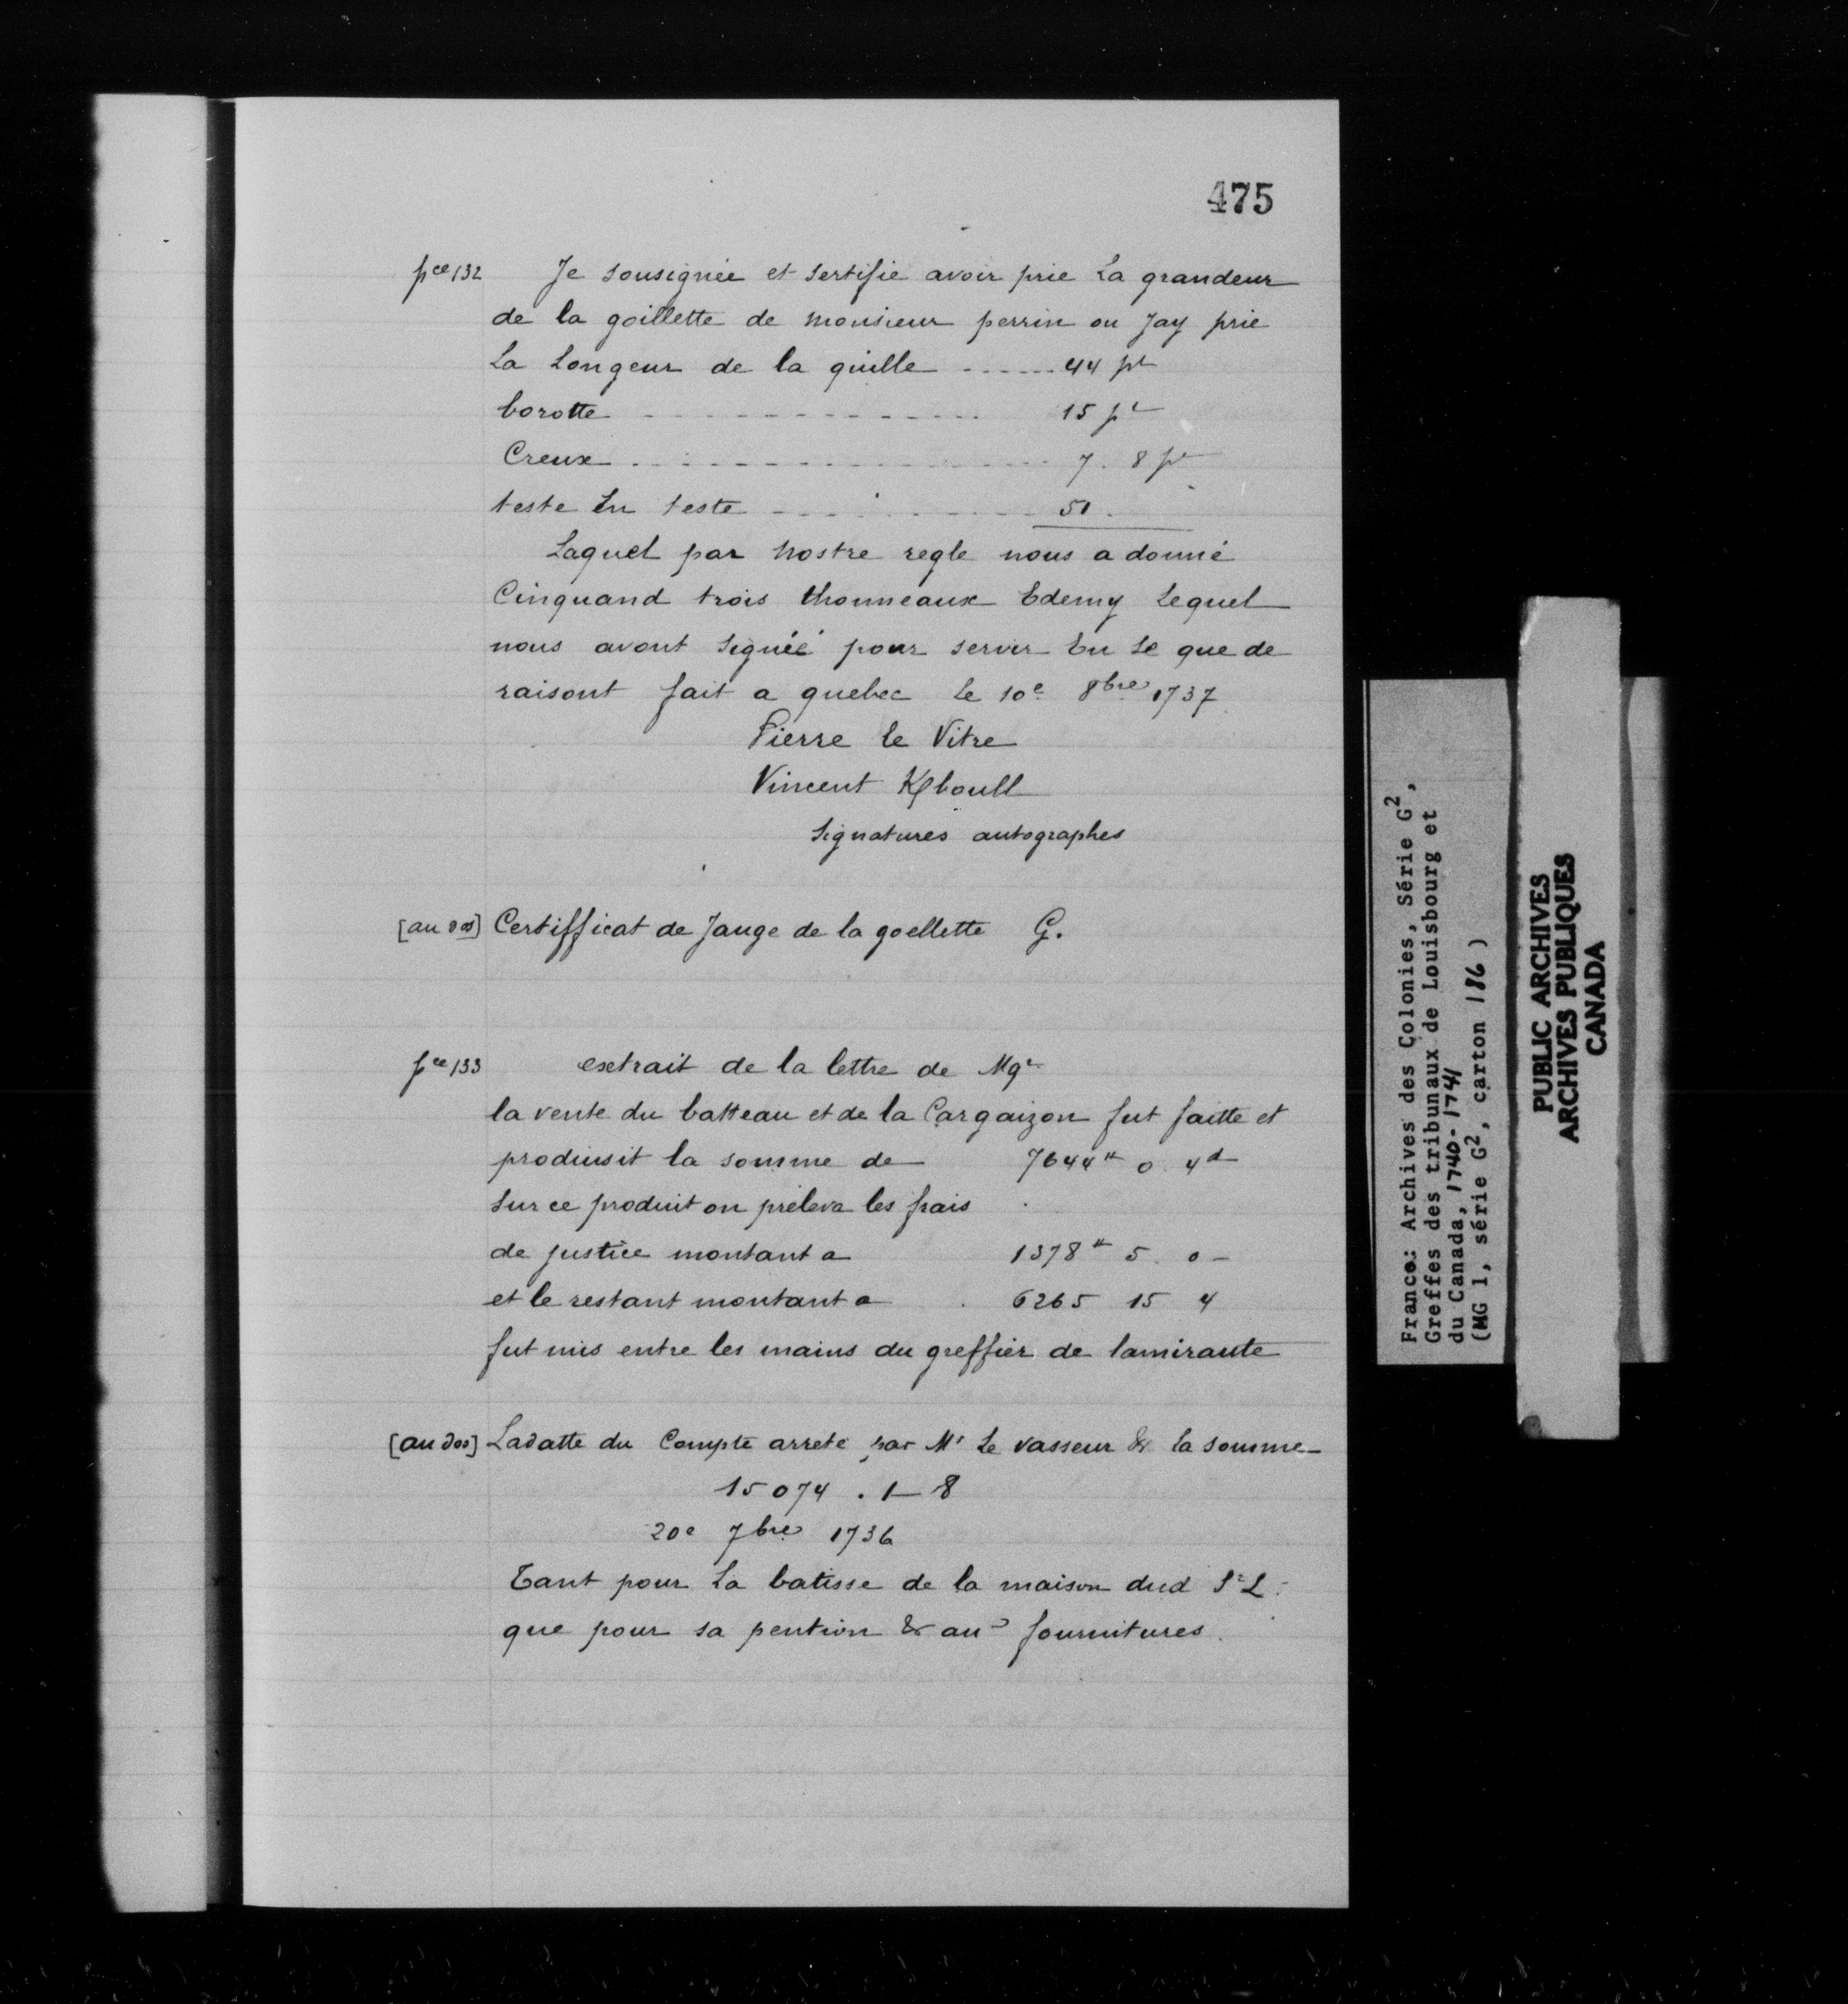 475
pce 132 Je sousignée et sertifie avoir prie La grandeur
de la goillette de monsieur perrin ou Jay prie
La Longeur de la quille ...... 44 pd
borotte .............. 15 pd
Creux .............. 7. 8 pd
teste En teste ............ 51.
Laquel par nostre regle nous a donné
Cinquand trois thonneaux Edemy Lequel
nous avont Signéé pour servir En Se que de
raisont fait a quebec le 10e 8bre 1737
Pierre le Vitre
Vincent Kboull
Signatures autographes
[au dos] Certifficat de Jauge de la goellette G.
pce 133 extrait de la lettre de Mgr
la vente du batteau et de la Cargaizon fut faitte et
produisit la somme de 7644tt 0. 4d
Sur ce produit on préleva les frais
de justice montant a 1378tt 5. 0 -
et le restant montant a 6265 15 4
fut mis entre les mains du greffier de lamiraute
[au dos] Ladatte du Compte arreté par Mr Le vasseur & la somme
15074 . 1 - 8
20e 7bre 1736
Tant pour La batisse de la maison dud Sr L.
que pour sa pention & au fournitures.
France: Archives des Colonies, Série G2,
Greffes des tribunaux de Louisbourg et
du Canada, 1740-1741
(MG 1, série G2, carton 186)
PUBLIC ARCHIVES
ARCHIVES PUBLIQUES
CANADA